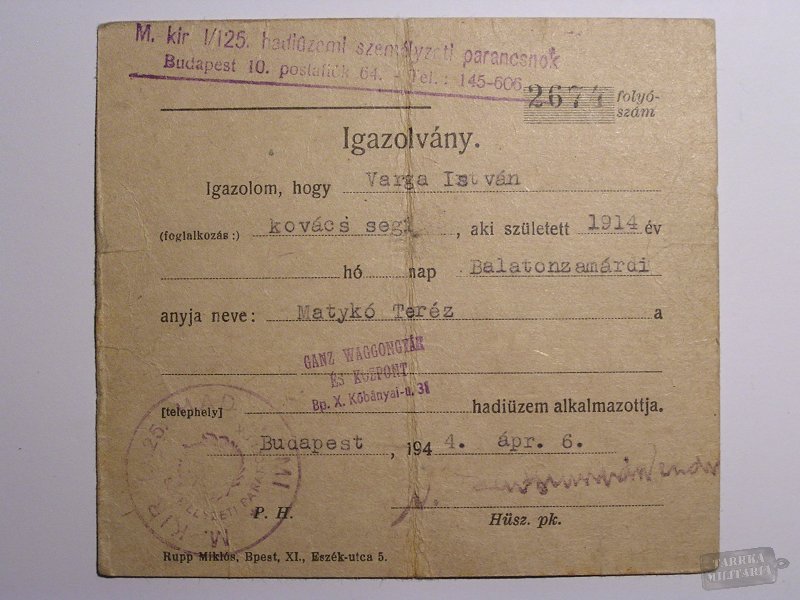 M. kir 1/125. hadiüzemi személyzeti parancsnok
Budapest 10. postafiók 64. - Tel.: 145-606
2674 folyó-
szám
Igazolvány.
Igazolom, hogy Varga István
(foglalkozás:) kovács segi , aki született 1914 év
hó nap Balatonzamárdi
anyja neve: Matykó Teréz a
GANZ WAGGONGYÁR
ÉS KÖZPONT
Bp. X. Kőbányai-u. 31
[telephely] hadiüzem alkalmazottja.
Budapest , 1944. ápr. 6.
P. H.
Hüsz. pk.
Rupp Miklós, Bpest, XI., Eszék-utca 5.
TARRKA
MILITARIA